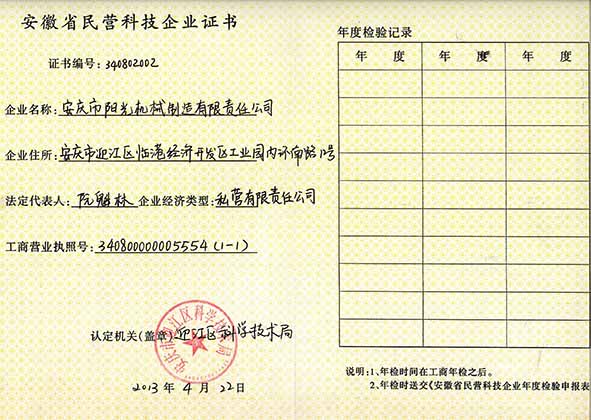 安徽省民营科技企业证书
证书编号：340802002
企业名称：安庆市阳光机械制造有限责任公司
企业住所：安庆市迎江区临港经济开发区工业园内环南路12号
法定代表人：阮魁林 企业经济类型：私营有限责任公司
工商营业执照号：340800000005554（1-1）
认定机关（盖章）迎江区科学技术局
安庆市迎江区科学技术局
2013年4月22日
年度检验记录
年 度 年 度 年 度
说明：1、年检时间在工商年检之后。
2、年检时送交《安徽省民营科技企业年度检验申报表